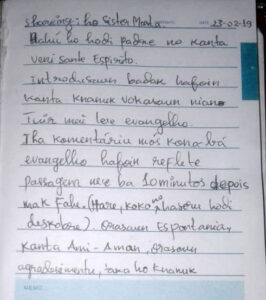 sharing: ho Sister Marta
DATE: 23-02-19
Hahú ho hodi padre no kanta
veni sante Espirito.
Introdusaun badak hafoin
kanta knanuk vokasaun nian
Tuir mai lee evangelho
Iha komentáriu mos kona-bá
evangelho hafoin reflete
passagem nee ba 10 minutos depois
mak Fahe. (Hare, koko no haseru hodi
deskobre). Orasaun Espontania,
kanta Ami-Aman, orasaun
agradesimentu, taka ho knanuk
MEMO